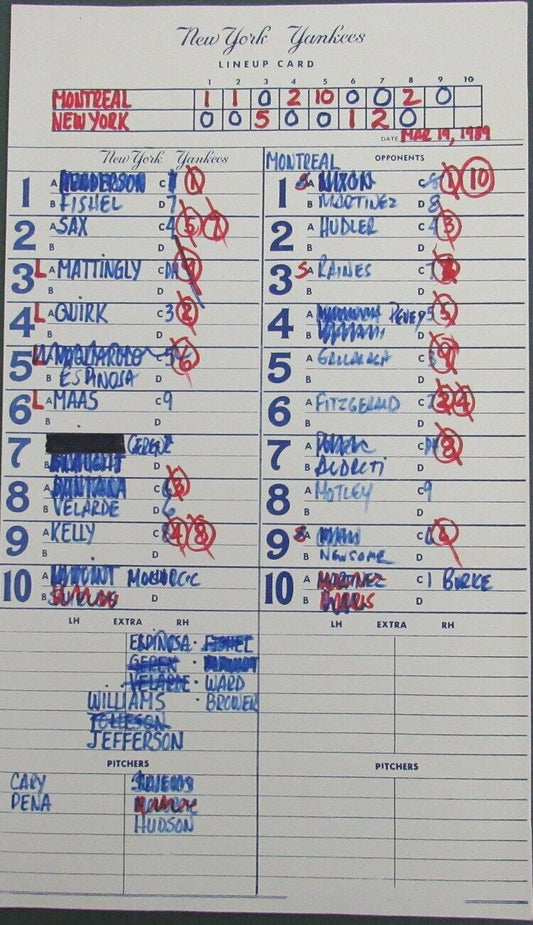 New York Yankees
LINEUP CARD
1 2 3 4 5 6 7 8 9 10
MONTREAL 1 1 0 2 10 0 0 2 0
NEW YORK 0 0 5 0 0 1 2 0
DATE MAR 19, 1989
New York Yankees
1 A HENDERSON C 1
B FISHEL D 7
2 A SAX C 4 5 7
B D
3 L A MATTINGLY C DH
B D
4 L A QUIRK C 3 2
B D
5 A C 5 6
B ESPINOSA D
6 L A MAAS C 9
B D
7 GEREN
B D
8 A SANTANA C 6 3
B VELARDE D 6
9 A KELLY C 8 4 8
B D
10 A MOHORCIC
B D
MONTREAL OPPONENTS
1 S A NIXON C 8 1 10
B MARTINEZ D 8
2 A HUDLER C 4 3
B D
3 S A RAINES C 7
B D
4 A C 5 5
B D
5 A GALARRAGA C 3
B D
6 A FITZGERALD C 2 2 4
B D
7 A C DH 3
B ALDRETI D
8 A MOTLEY C 9
B D
9 S A C 6
B NEWSOME D
10 A MARTINEZ C 1 BURKE
B D
LH EXTRA RH
ESPINOSA · FISHEL
GEREN
VELARDE · WARD
WILLIAMS · BROWER
TOLLESON
JEFFERSON
PITCHERS
CARY
PENA
HUDSON
LH EXTRA RH
PITCHERS